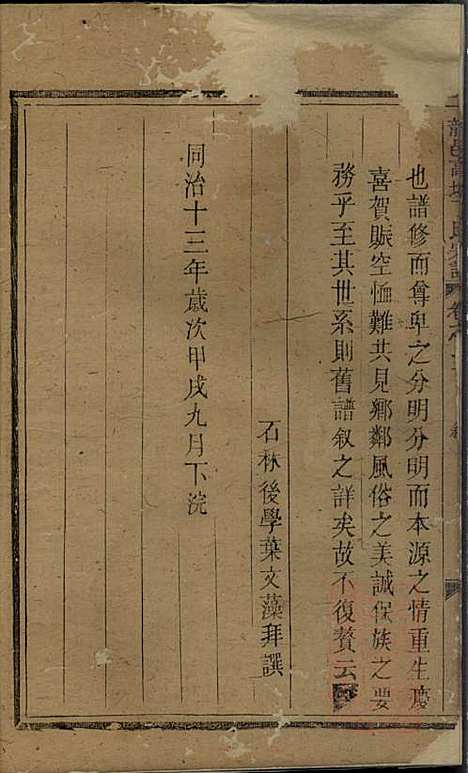 也譜修而尊卑之分明分明而本源之情重生慶
喜賀賑空恤難共見鄉鄰風俗之美誠保族之要
務乎至其世系則舊譜叙之詳矣故不復贅云
石林後學葉文藻拜譔
同治十三年歲次甲戌九月下浣